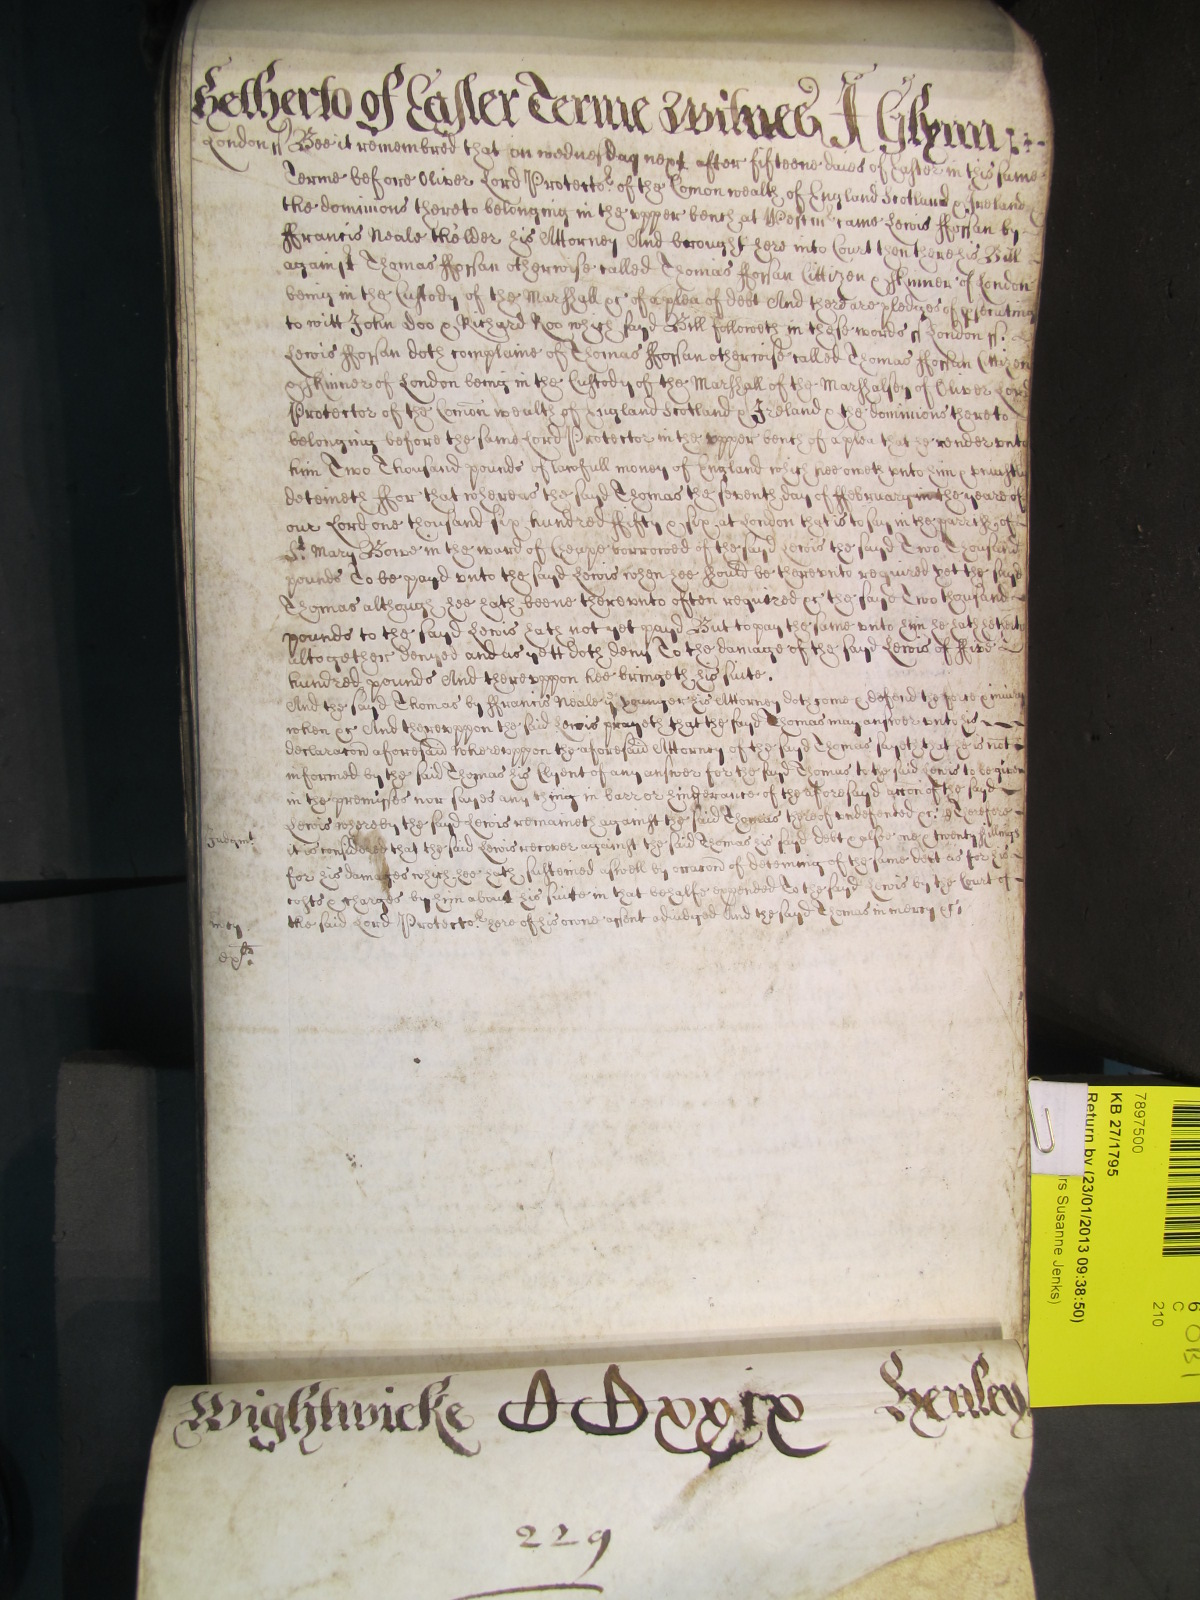 Hetherto of Easter Terme Witnes J Glynn
London ss Bee it remembred that on wednesday next after fifteene daies of Easter in this same
Terme before Oliver Lord Protector of the Comon wealth of England Scotland & Ireland &
the dominions thereto belonging in the vpper bench at Westmr came Lewis ffossan by
ffrancis Neale the elder his Attorney And brought here into Court then there his Bill
against Thomas ffossan otherwise called Thomas ffossan Cittizen & Skinner of London
being in the Custody of the Marshall &c of a plea of debt And there are pledges of prosecuting
to witt John Doo & Richard Roo which sayd Bill followeth in these words ss London ss.
Lewis ffossan doth complaine of Thomas ffossan otherwise called Thomas ffossan Citizen
& Skinner of London being in the Custody of the Marshall of the Marshalsey of Oliver Lord
Protector of the Comon wealth of England Scotland & Ireland & the dominions thereto
belonging before the same Lord Protector in the vpper bench of a plea that he render vnto
him Two Thousand pounds of lawfull money of England which hee oweth vnto him & vniustly
deteineth ffor that whereas the sayd Thomas the seventh day of ffebruary in the yeare of
our Lord one thousand six hundred ffifty & six at London that is to say in the parrish of
St Mary Bowe in the ward of Cheape borrowed of the sayd Lewis the sayd Two Thousand
pounds To be payd vnto the sayd Lewis when hee should be therevnto required yet the sayd
Thomas although hee hath beene therevnto often required &c the sayd Two thousand
pounds to the sayd Lewis hath not yet payd But to pay the same vnto him he hath hetherto
altogether denyed and as yett doth deny To the damage of the sayd Lewis of ffive
hundred pounds And therevppon hee bringeth his suite.
And the sayd Thomas by ffrancis Neale ye younger his Attorney doth come & defend the force & iniury
when &c And therevppon the said Lewis prayeth that the sayd Thomas may answer vnto his
declaracon aforesaid wherevppon the aforesaid Attorney of the sayd Thomas sayeth that he is not
informed by the said Thomas his Clyent of any answer for the sayd Thomas to the said Lewis to be given
in the premisses nor sayes any thing in barr or hinderance of the aforesayd accon of the sayd
Lewis whereby the sayd Lewis remaineth against the said Thomas thereof vndefended &c. Therefore
Judgmt it is considered that the said Lewis recover against the said Thomas his sayd debt & alsoe twenty shillings
for his damages which hee hath susteined aswell by occacon of deteining of the same debt as for his
costs & charges by him about his suite in that behalfe expended To the sayd Lewis by the Court of
mcy the said Lord Protector here of his owne assent adiudged And the sayd Thomas in mercy &c
Wightwicke DDxxix Henley
229
7897500
KB 27/1795
Return by (23/01/2013 09:38:50)
rs Susanne Jenks)
6
C
210